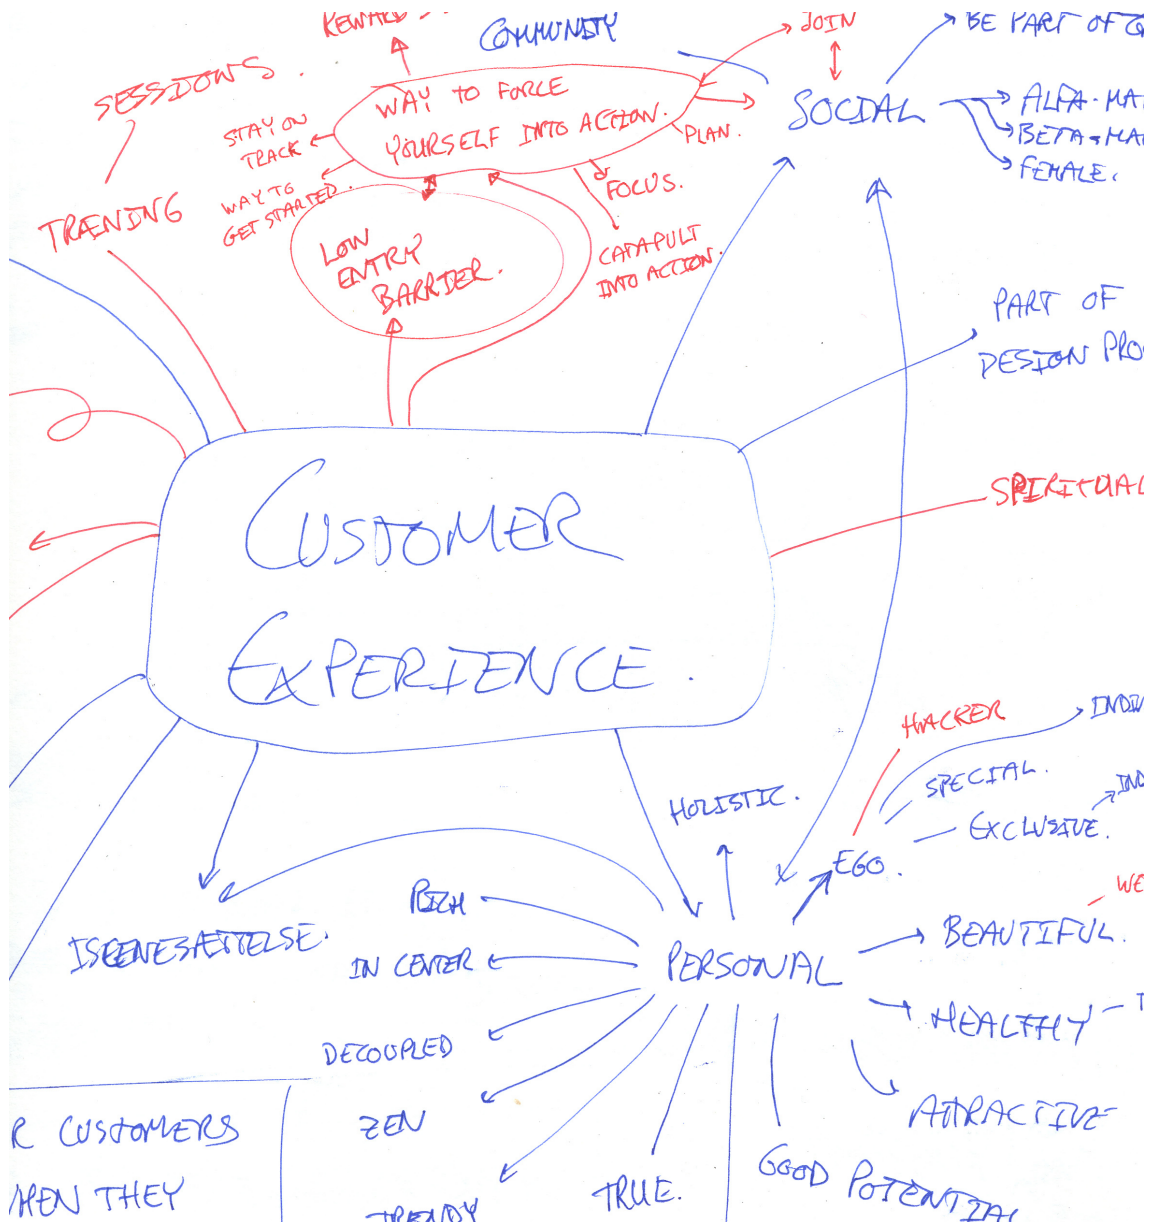 REWARDS
COMMUNITY
JOIN
BE PART OF
SESSIONS.
WAY TO FORCE
YOURSELF INTO ACTION.
SOCIAL
ALFA-MA
BETA-MA
FEMALE.
STAY ON
TRACK
PLAN.
WAY TO
GET STARTED.
FOCUS.
TRÆNING
LOW
ENTRY
BARRIER.
CATAPULT
INTO ACTION.
PART OF
DESIGN PRO
SPIRITUAL
CUSTOMER
EXPERIENCE.
HACKER
INDIV
SPECIAL.
IND
EXCLUSIVE.
HOLISTIC.
EGO.
WE
RICH
BEAUTIFUL.
ISCENESÆTTELSE.
IN CENTER
PERSONAL
HEALTHY - T
DECOUPLED
ATTRACTIVE
R CUSTOMERS
ZEN
HEN THEY
TRENDY
TRUE.
GOOD POTENTIAL